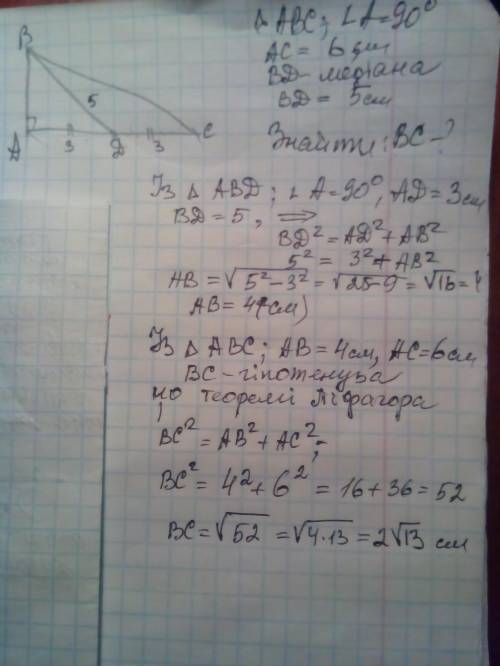 △ ABC; ∠A=90°
AC = 6 см
BD - медіана
BD = 5 см
Знайти: BC - ?
B
5
A 3 D 3 C
Із △ ABD; ∠A=90°, AD=3 см
BD=5, ⇒
BD² = AD² + AB²
5² = 3² + AB²
AB = √5²-3² = √25-9 = √16 = 4
AB = 4 (см)
Із △ ABC; AB=4 см, AC=6 см
BC - гіпотенуза
по теоремі Піфагора
BC² = AB² + AC²;
BC² = 4² + 6² = 16 + 36 = 52
BC = √52 = √4·13 = 2√13 см